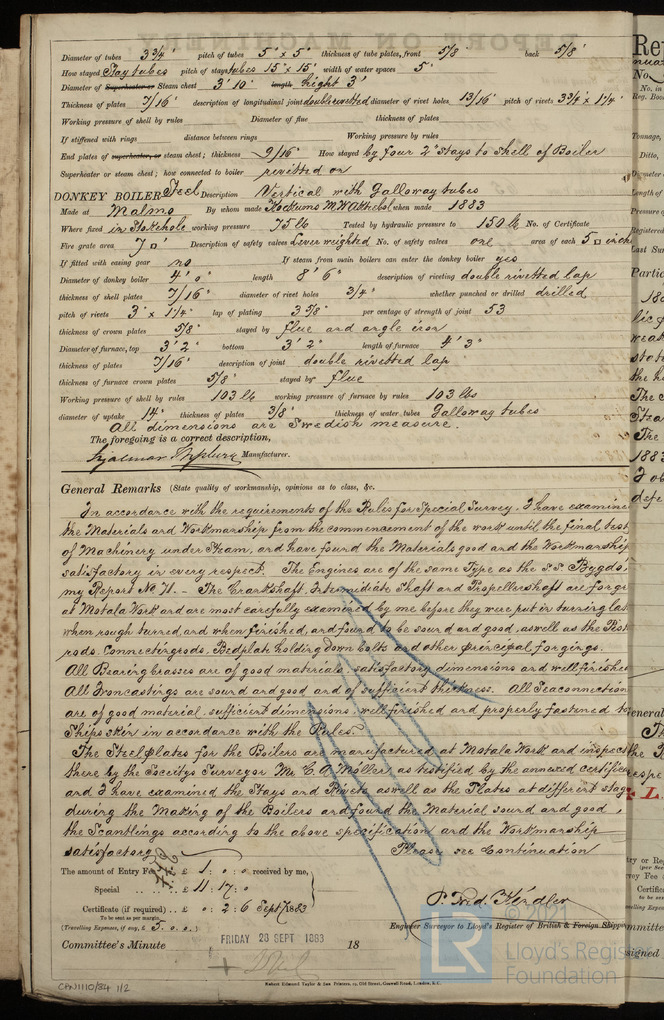 Diameter of tubes 3 3/4" pitch of tubes 5" x 5" thickness of tube plates, front 5/8" back 5/8"
How stayed Stay tubes pitch of stays tubes 15" x 15" width of water spaces 5"
Diameter of Superheater or Steam chest 3' 10" length hight 3'
Thickness of plates 7/16" description of longitudinal joint double rivetted diameter of rivet holes 13/16" pitch of rivets 3 3/4" x 1 1/4"
Working pressure of shell by rules Diameter of flue thickness of plates
If stiffened with rings distance between rings Working pressure by rules
End plates of superheater, or steam chest; thickness 9/16" How stayed by four 2" stays to shell of Boiler
Superheater or steam chest; how connected to boiler rivetted on
DONKEY BOILER Steel Description Vertical with Galloway tubes
Made at Malmo By whom made Kockums MW Aktiebol when made 1883
Where fixed in Stokehole working pressure 75 lb Tested by hydraulic pressure to 150 lb No. of Certificate
Fire grate area 7 □' Description of safety valves Lever weighted No. of safety valves one area of each 5 □ inch
If fitted with easing gear no If steam from main boilers can enter the donkey boiler yes
Diameter of donkey boiler 4' 0" length 8' 6" description of riveting double rivetted lap
thickness of shell plates 7/16" diameter of rivet holes 3/4" whether punched or drilled drilled
pitch of rivets 3" x 1 1/4" lap of plating 3 5/8" per centage of strength of joint 53
thickness of crown plates 5/8" stayed by flue and angle iron
Diameter of furnace, top 3' 2" bottom 3' 2" length of furnace 4' 3"
thickness of plates 7/16" description of joint double rivetted lap
thickness of furnace crown plates 5/8" stayed by flue
Working pressure of shell by rules 103 lb working pressure of furnace by rules 103 lbs
diameter of uptake 14" thickness of plates 3/8" thickness of water tubes Galloway tubes
All dimensions are Swedish measure.
The foregoing is a correct description,
Hjalmar Manufacturer.
General Remarks (State quality of workmanship, opinions as to class, &c.
In accordance with the requirements of the Rules for Special Survey. I have examine
the Materials and Workmanship from the commencement of the work until the final test
of Machinery under Steam, and have found the Materials good and the Workmanship
satisfactory in every respect. The Engines are of the same Type as the S.S. Bygdö,
my Report No 71. - The Crankshaft, Intermediate Shaft and Propellershaft are forged
at Motala Work and are most carefully examined by me before they were put in turning lat
when rough turned, and when finished, and found to be sound and good, as well as the Pist
rods, Connectingrods, Bedplate holding down bolts and other principal forgings.
All Bearing brasses are of good materials, satisfactory dimensions and well finished
All Ironcastings are sound and good and of sufficient thickness. All Seaconnection
are of good material, sufficient dimensions, well finished and properly fastened to
Ships skin in accordance with the Rules.
The Steelplates for the Boilers are manufactured at Motala Work and inspect
there by the Societys Surveyor Mr. C. A. Möller, as testified by the annexed certifica
and I have examined the Stays and Rivets as well as the Plates at different stag
during the Making of the Boilers and found the Material sound and good,
the Scantlings according to the above specification and the Workmanship
satisfactory Please see Continuation
The amount of Entry Fee .. £ 1 : 0 : 0 received by me,
Special .. .. .. £ 11 : 17 : 0
Certificate (if required) .. £ 0 : 2 : 6 Sept 1883
To be sent as per margin.
(Travelling Expenses, if any, £ 3 . 0 . 0 )
Engineer Surveyor to Lloyd's Register of British & Foreign Shipp
Committee's Minute FRIDAY 28 SEPT 1883 18
Robert Edmund Taylor & Son, Printers, 19, Old Street, Goswell Road, London, E.C.
CAN1110/84 1/2
LR © 2021
Lloyd's Register
Foundation